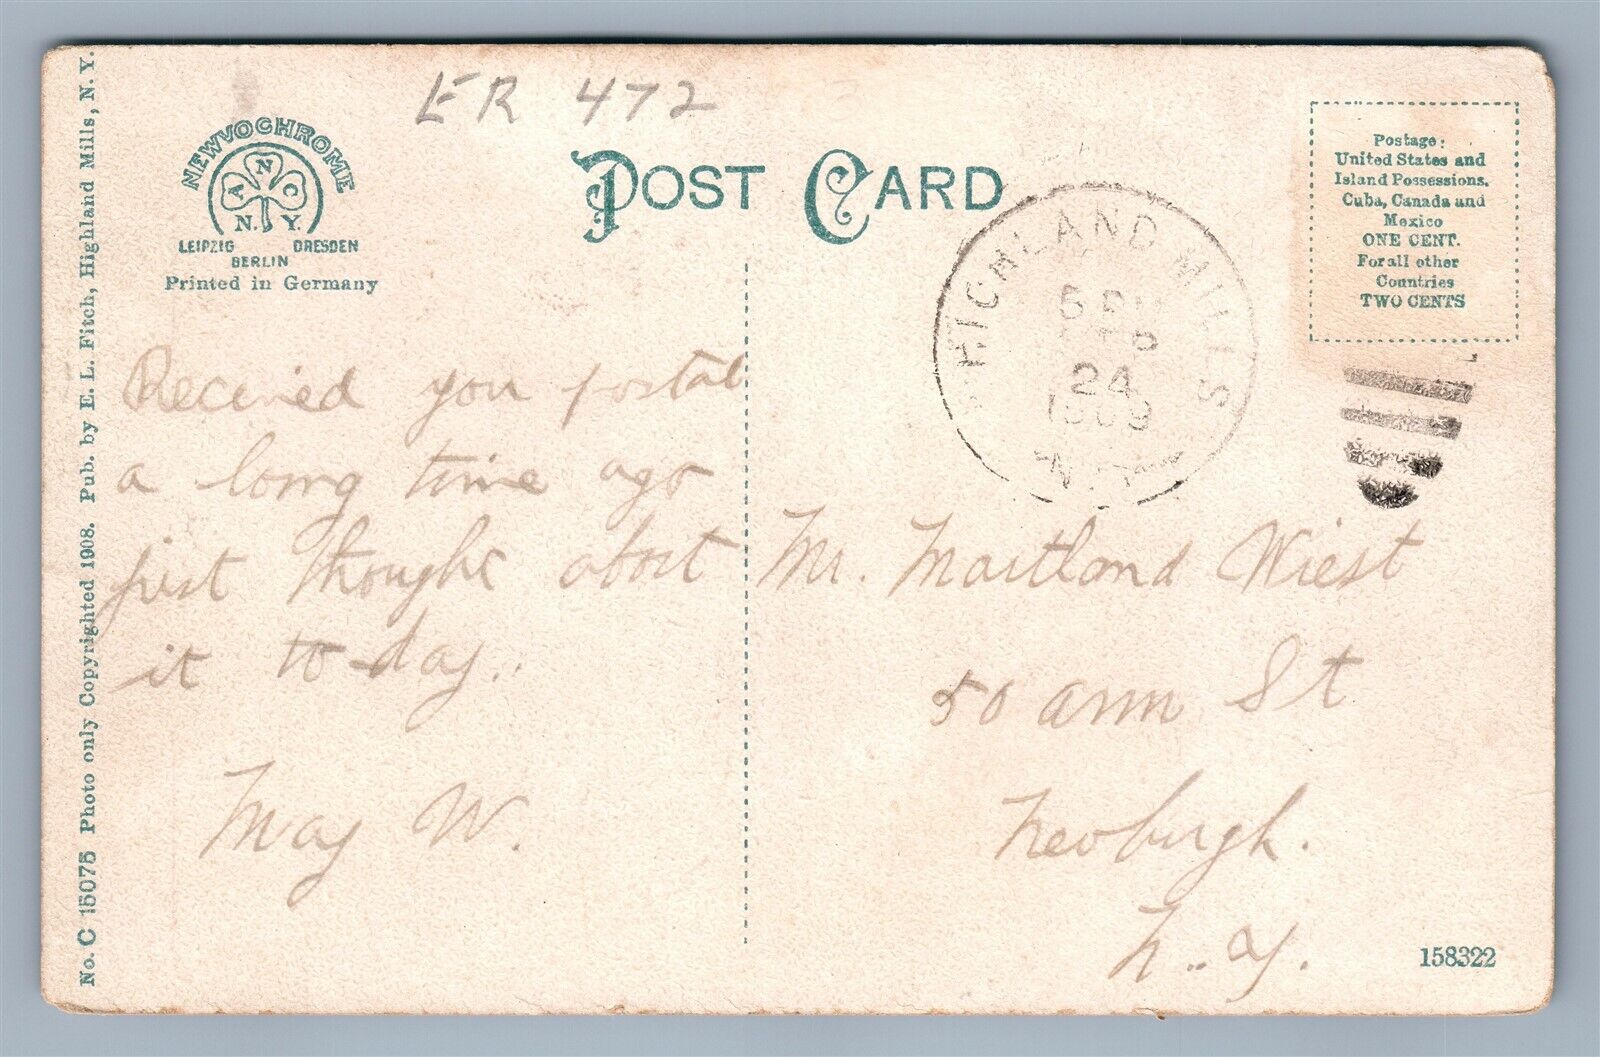 ER 472
NEWVOCHROME
A N C
N. Y.
LEIPZIG DRESDEN
BERLIN
Printed in Germany
POST CARD
Postage:
United States and
Island Possessions,
Cuba, Canada and
Mexico
ONE CENT.
For all other
Countries
TWO CENTS
HIGHLAND MILLS
5 PM
24
1909
N.Y.
No. C 15075 Photo only Copyrighted 1908. Pub. by E. L. Fitch, Highland Mills, N. Y.
Received you postal
a long time ago
just thought about
it to-day.
May W.
Mr. Maitland Wiest
50 ann St
Newburgh.
N.Y.
158322